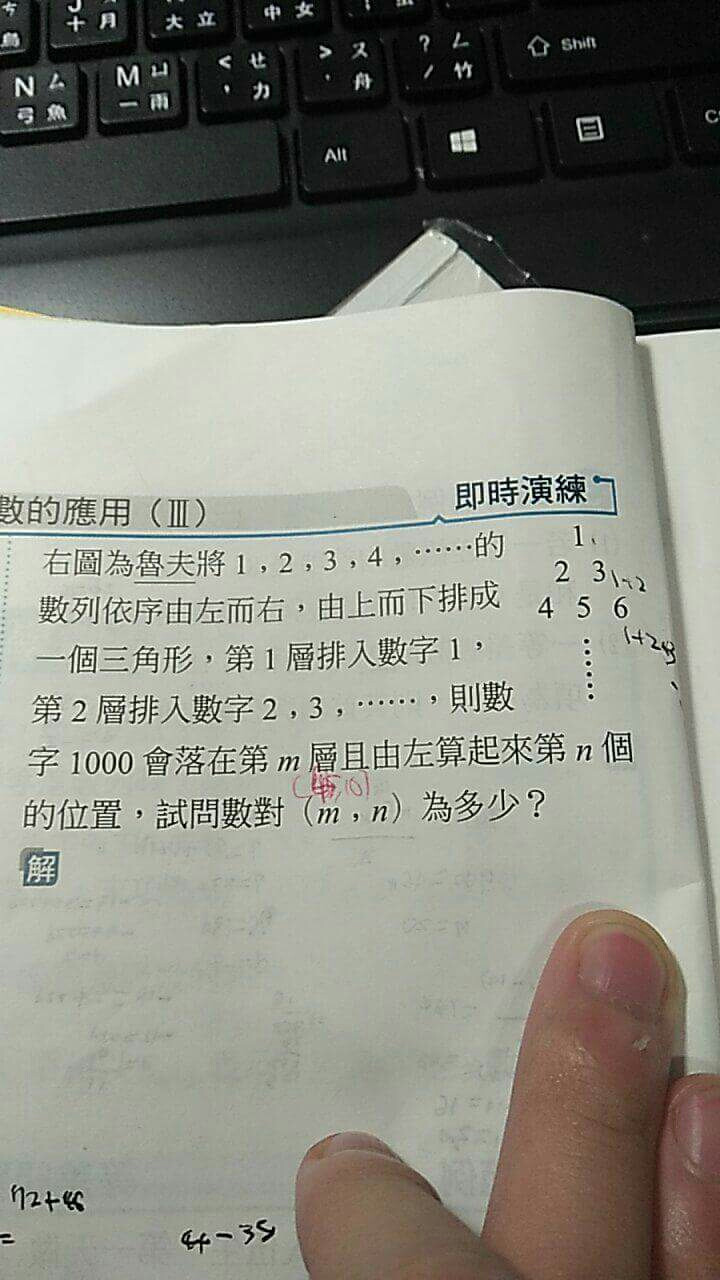 J 十 月
大 立
中 女
N 弓 ㄙ 魚
M 一 ㄩ 雨
< , ㄝ 力
> . ㄡ 舟
? / ㄥ 竹
Shift
Alt
數的應用（Ⅲ）
即時演練
右圖為魯夫將 1，2，3，4，……的
數列依序由左而右，由上而下排成
一個三角形，第 1 層排入數字 1，
第 2 層排入數字 2，3，……，則數
字 1000 會落在第 m 層且由左算起來第 n 個
的位置，試問數對（m，n）為多少？
1
2 3 1+2
4 5 6
解